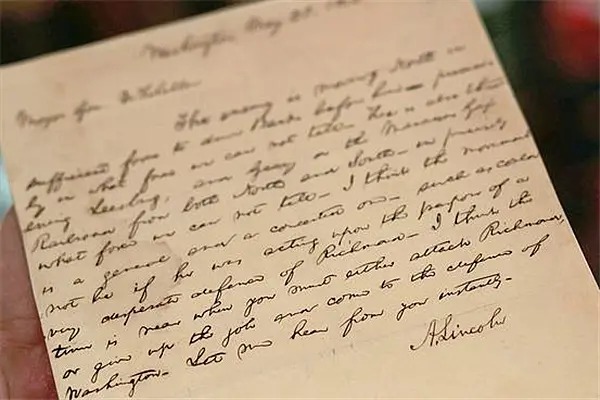 Washington, May 25. 186
Major Gen. McClellan
The enemy is moving North in
sufficient force to drive Banks before him precise
ly in what force we can not tell. He is also threat
ening Leesburg, and Geary on the Manassas Gap
Railroad from both North and South— in precisely
what force we can not tell— I think the movement
is a general and a concerted one— such as could
not be if he was acting upon the purpose of a
very desperate defence of Richmond— I think the
time is near when you must either attack Richmond,
or give up the job and come to the defence of
Washington— Let me hear from you instantly—
A. Lincoln